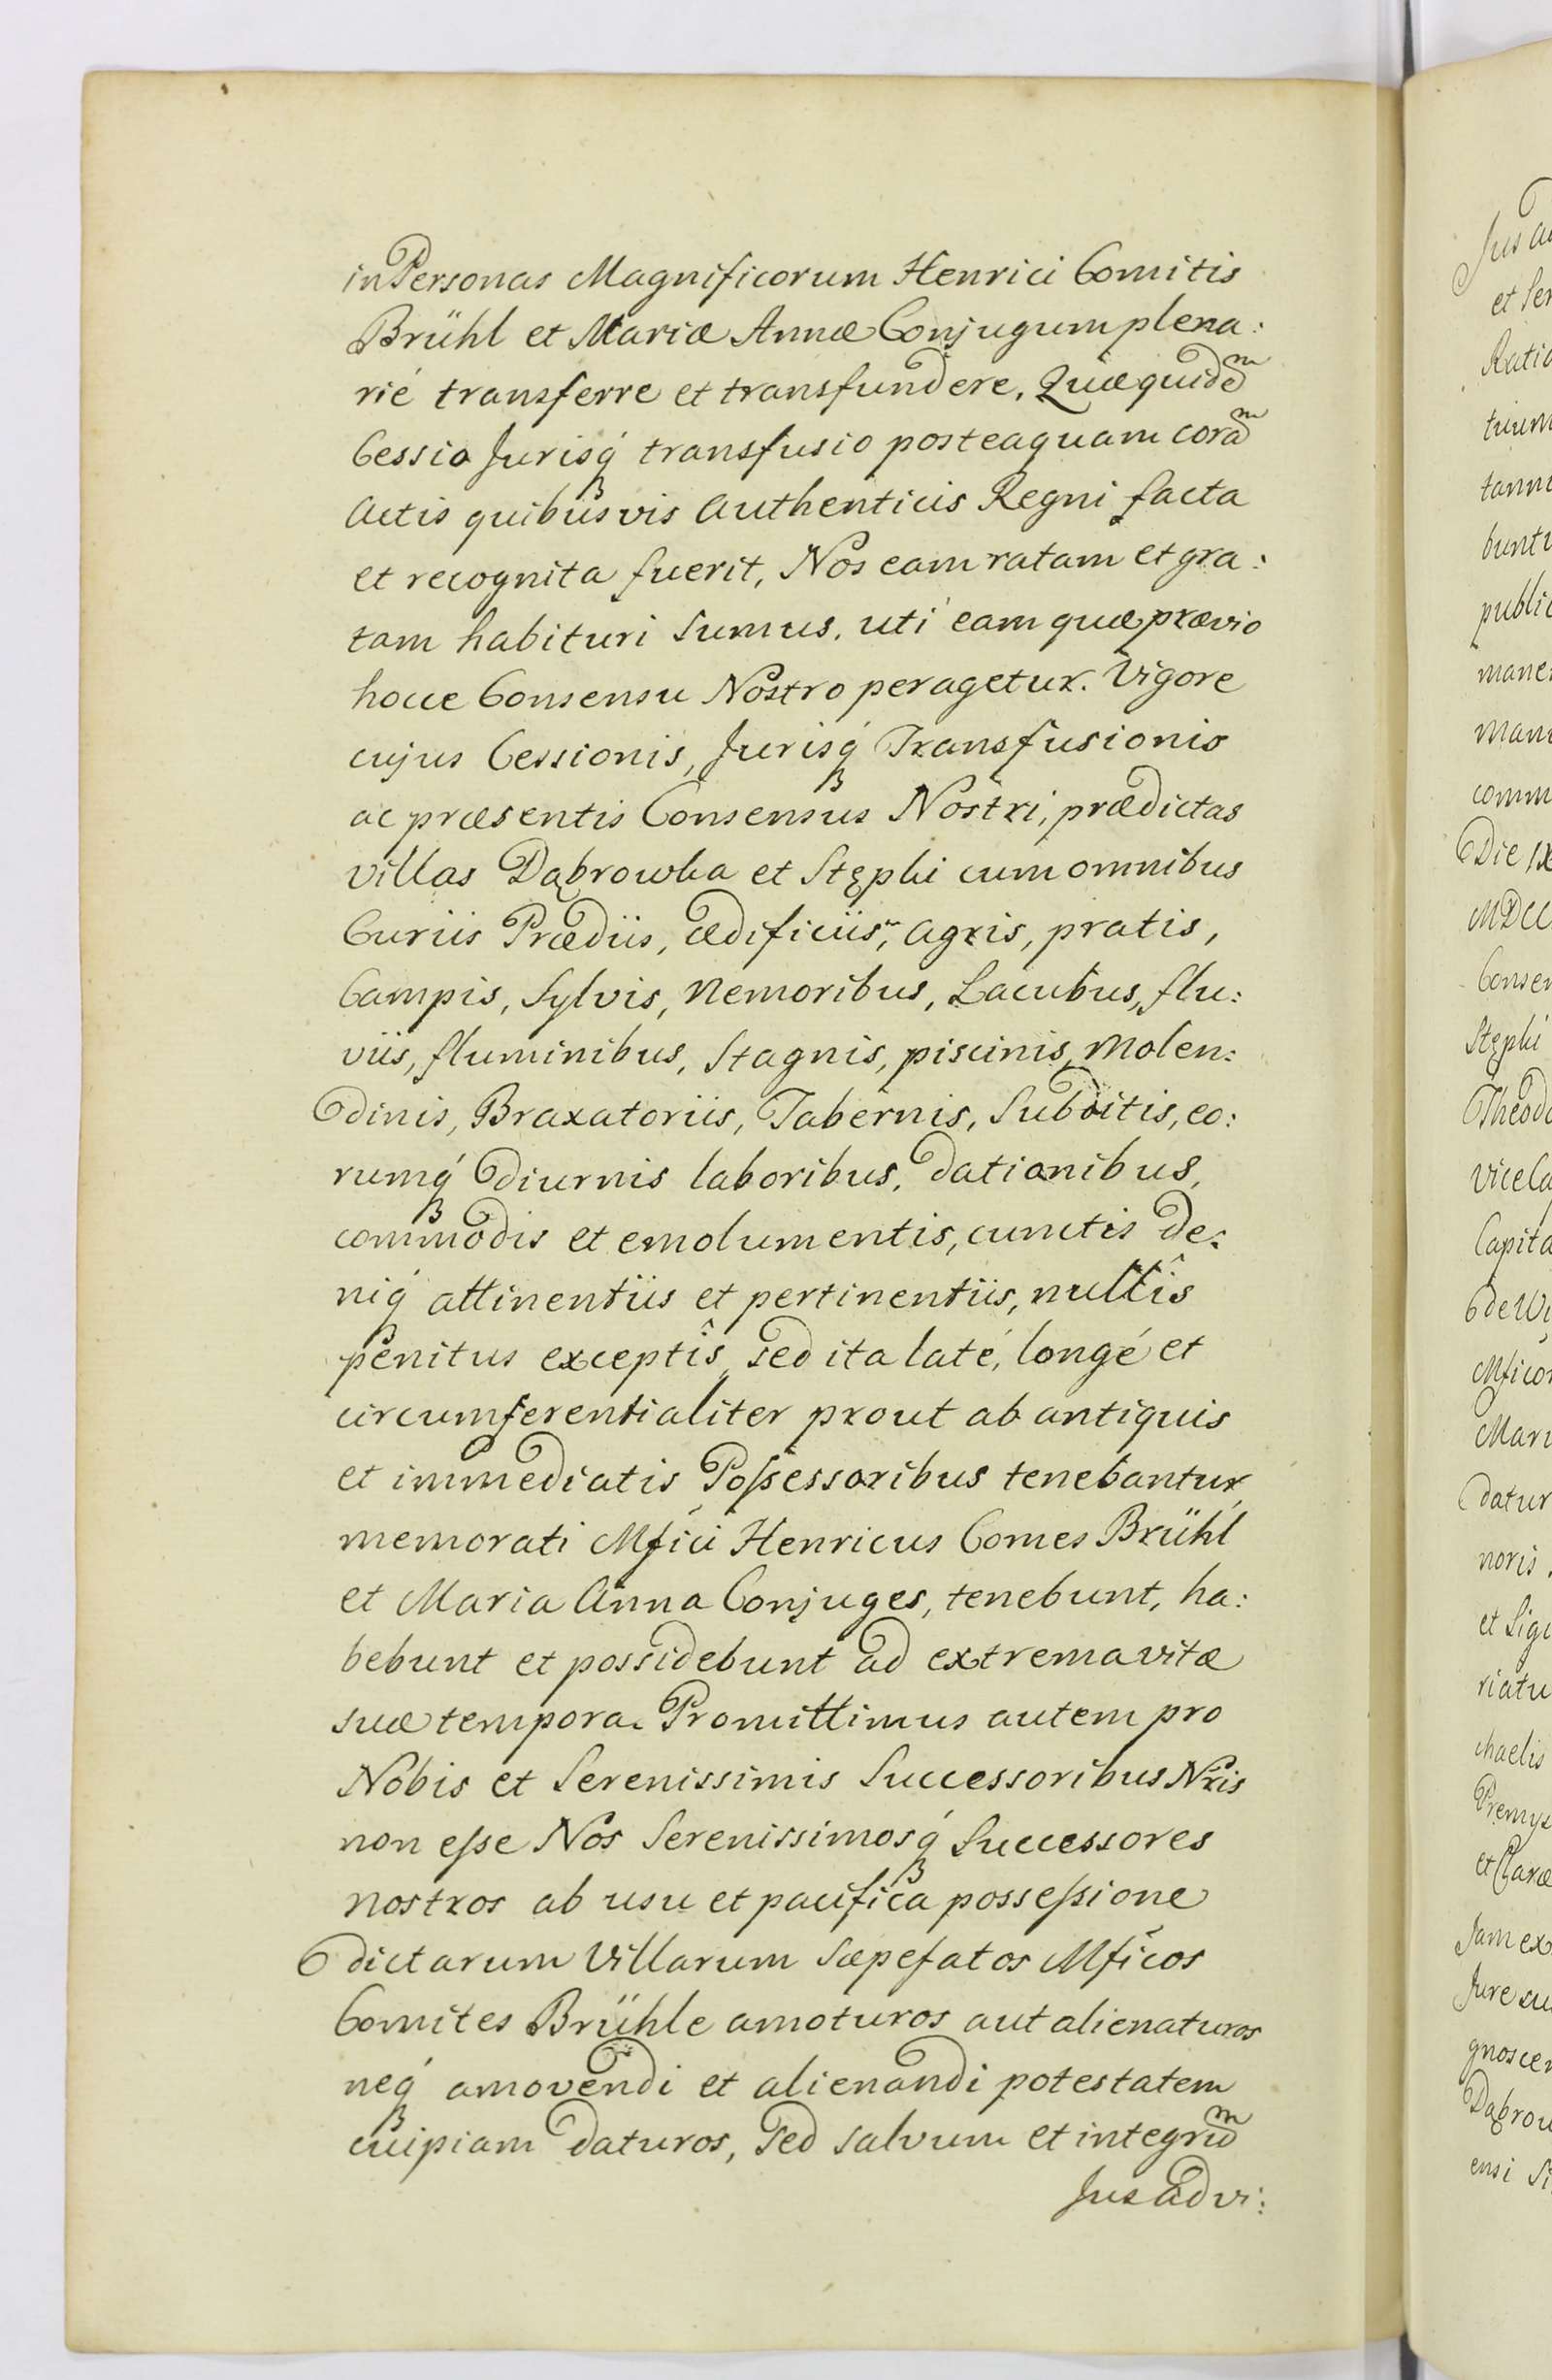 in Personas Magnificorum Henrici Comitis
Brühl et Mariæ Annæ Conjugum plena:
rié transferre et transfundere. Quæ quidẽm
Cessio Jurisq́ transfusio posteaquam corãm
Actis quibusvis Authenticis Regni facta
et recognita fuerit, Nos eam ratam et gra:
tam habituri sumus. uti eam quæ prævio
hocce Consensu Nostro peragetur. Vigore
cujus Cessionis, Jurisq́ Transfusionis
ac præsentis Consensus Nostri, prædictas
villas Dąbrowka et Stępki cum omnibus
Curiis Prædiis, ædificiis, agris, pratis,
Campis, Sylvis, Nemoribus, Lacubus, flu:
viis, fluminibus, Stagnis, piscinis, Molen:
dinis, Braxatoriis, Tabernis, Subditis, eo:
rumq́ diurnis laboribus, dationibus,
commodis et emolumentis, cunctis de:
niq́ attinentiis et pertinentiis, nullîs
penitus exceptîs, sed ita laté, longé et
circumferentialiter prout ab antiquis
et immediatis Possessoribus tenebantur,
memorati Mfici Henricus Comes Brühl
et Maria Anna Conjuges, tenebunt, ha:
bebunt et possidebunt ad extrema vitæ
suæ tempora. Promittimus autem pro
Nobis et Serenissimis Successoribus Nris
non esse Nos Serenissimosq́ Successores
nostros ab usu et pacifica possessione
dictarum Villarum sæpefatos Mficos
Comites Brühle amoturos aut alienaturos
neq́ amovendi et alienandi potestatem
cuipiam daturos, sed salvum et integrũm
Jus ad vi:
Jus a
et Ser
Ratio
trium
tanni
buntu
public
mane
Manu
comm
Die IX
MDCC
Consen
Stępki
Theodo
ViceCa
Capita
de Wi
Mficor
Mari
datur
noris
et Sigi
riatu
chaelis
Premys
et Claræ
Jam ex
Jure su
gnoscen
Dąbrow
ensi Si